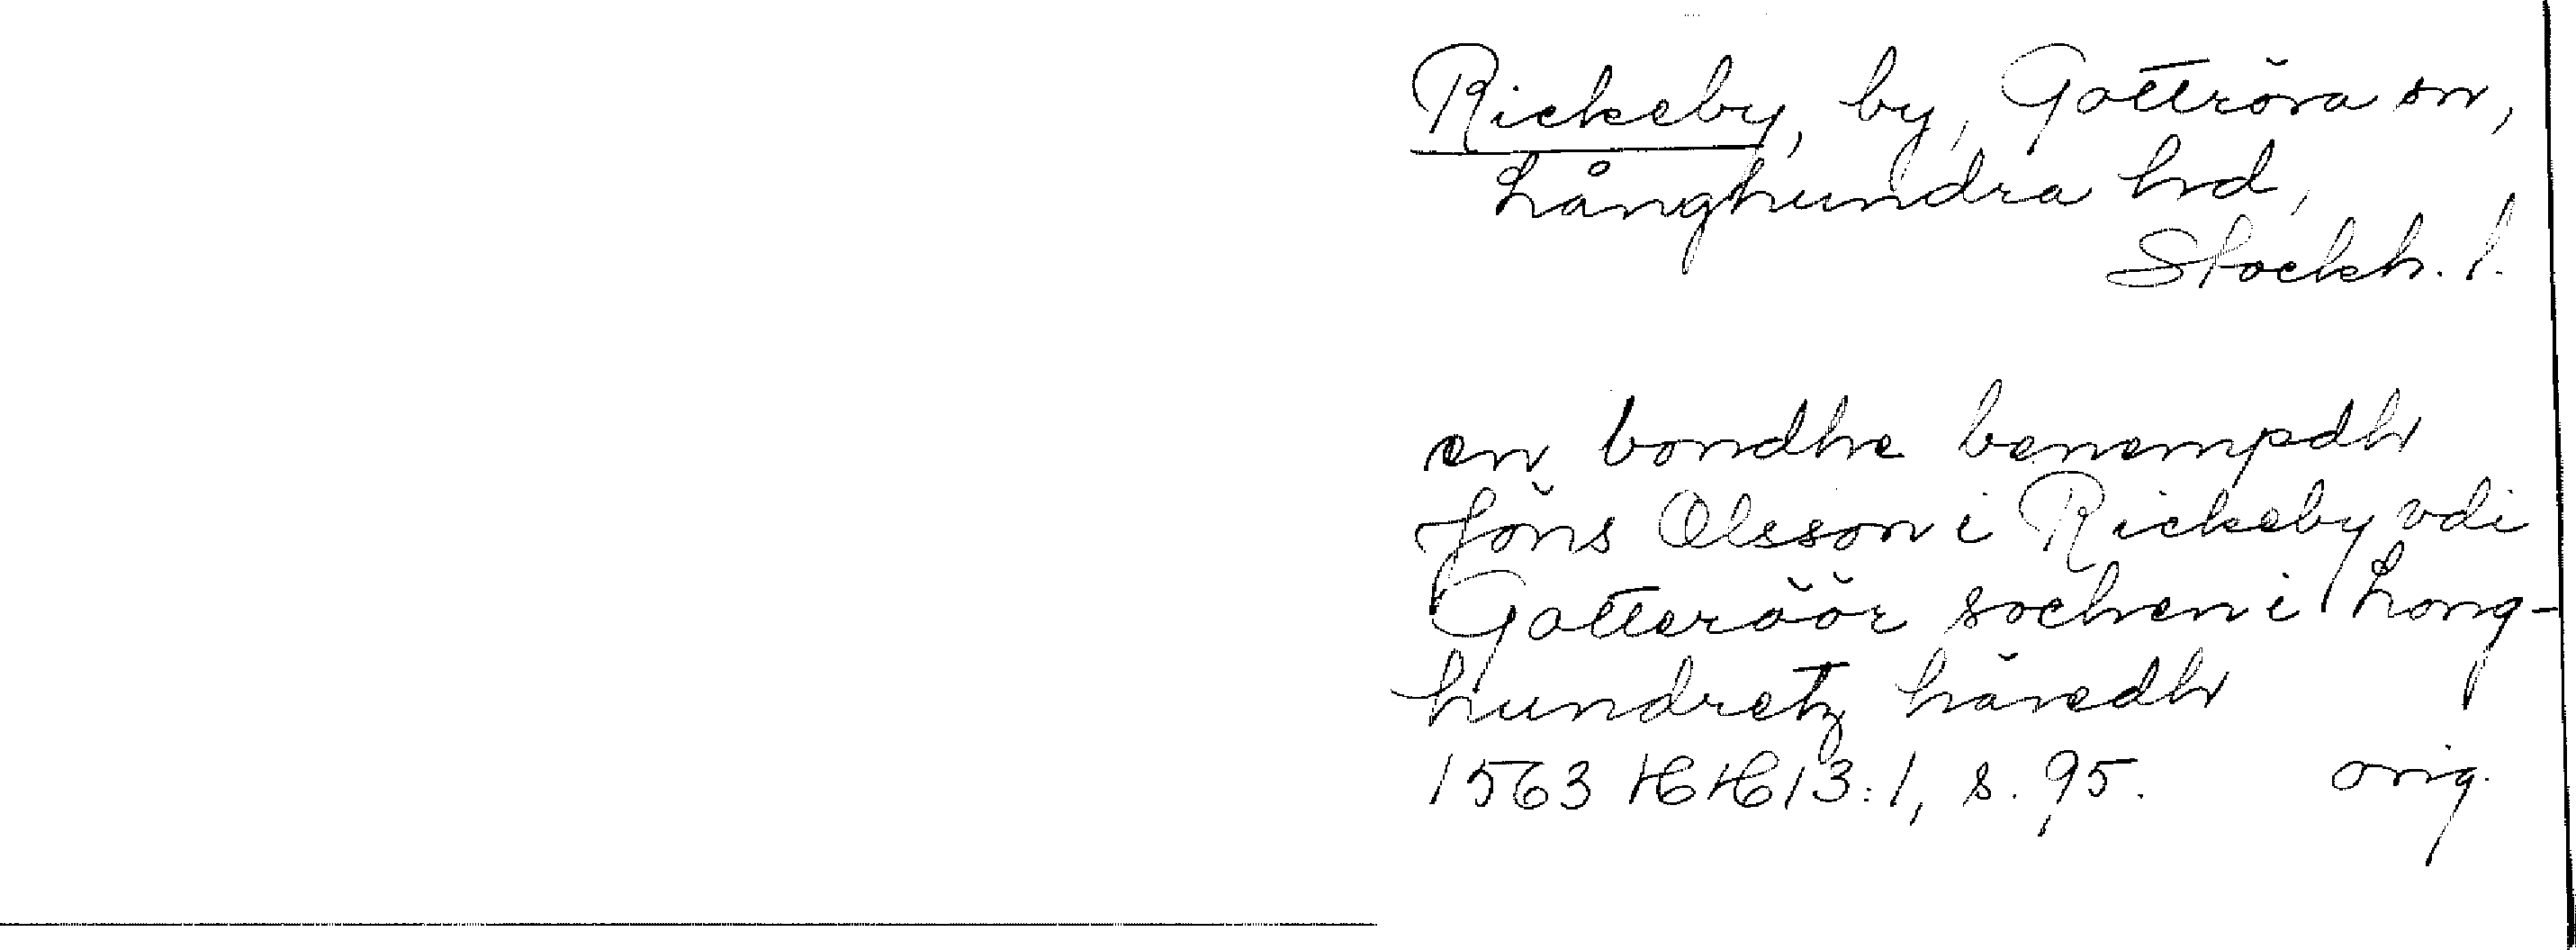 Rickeby, by, Gottröra sn,
Långhundra hd,
Stockh. l.
en bondhe benempdh
Jöns Olsson i Rickeby vdi
Gotteröör sochen i Long-
hundretz häredh
1563 HH 13:1, s. 95. orig.